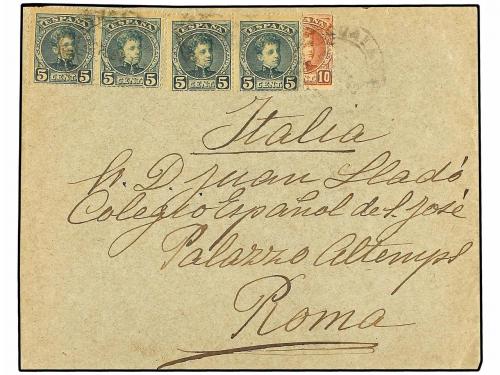 ESPAÑA ESPAÑA ESPAÑA ESPAÑA
5 CENT. 5 5 CENT. 5 5 CENT. 5 5 CENT. 5 10
Italia
Sr. D. Juan Lladó
Colegio Español de S. José
Palazzo Altemps
Roma